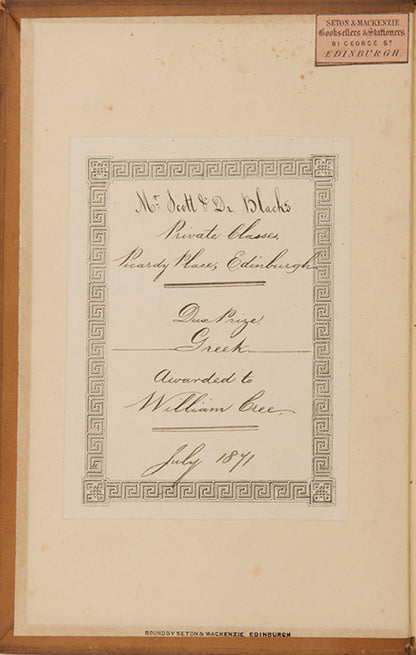 SETON & MACKENZIE
Booksellers & Stationers
81 GEORGE ST
EDINBURGH.
Mr. Scott & Dr. Black's
Private Classes,
Picardy Place, Edinburgh
Dux Prize,
Greek
Awarded to
William Cree,
July 1871
BOUND BY SETON & MACKENZIE EDINBURGH